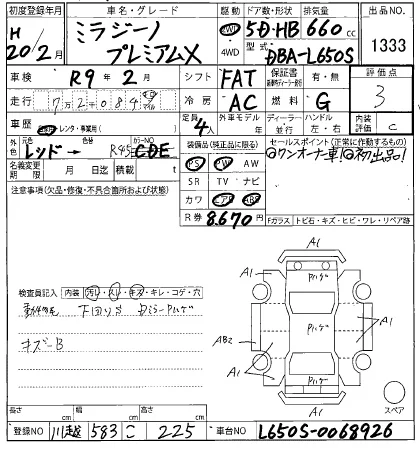 初度登録年月 車名・グレード 駆動 ドア数・形状 排気量 出品NO.
H 20/2月 ミラジーノ プレミアムX 2WD 4WD 5D・HB 660 cc
型式 DBA-L650S 1333
車検 R9年2月 シフト FAT 保証書 有・無 評価点
走行 72084 冷房 AC 燃料 G 3
車歴 自家用 レンタ・事業用( ) 定員 4人 外車モデル 年 ディーラー 並行 ハンドル 左・右 内装評価 C
外色 元色 レッド→ 色替 R45 カラーNO. CDE 装備品(純正品に限る) セールスポイント(正常に作動するもの)
名義変更期限 月 日迄 積載 t PS PW AW ◎ワンオーナー車!◎初出品!
注意事項(欠品・修復・不具合箇所および状態) SR TV ナビ
カワ エアB ABS
R券 8.670円 Fガラス トビ石・キズ・ヒビ・ワレ・リペア跡
A1
A1 Pハゲ
検査員記入 内装 汚れ・スレ・キズ・キレ・コゲ・穴
下回りサ ミラーPハゲ AB2 Pハゲ A1
キズーB
A1 Pハゲ A1
A1 スペア
長さ cm 幅 cm 高さ cm
登録NO 川越 583 こ 225 車台NO L650S-0068926